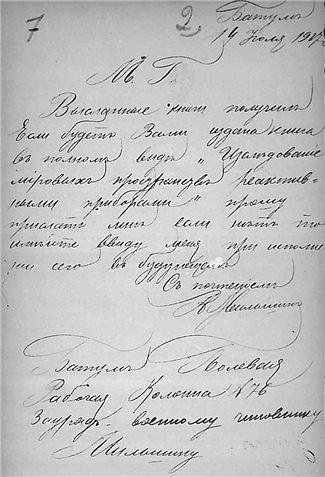 7 2. Батумъ
14 Юля 191
М. Г.
Высланные книги получилъ
Если будетъ Вами издана книга
въ полномъ видѣ „Изслѣдованіе
міровыхъ пространствъ реактив-
ными приборами" прошу
прислать мнѣ если нѣтъ то
имѣйте ввиду меня при исполне
ніи сего въ будущемъ
Съ почтеніемъ
Батумъ Полевая
Рабочая Колонна № 76
Заурядъ-военному чиновнику